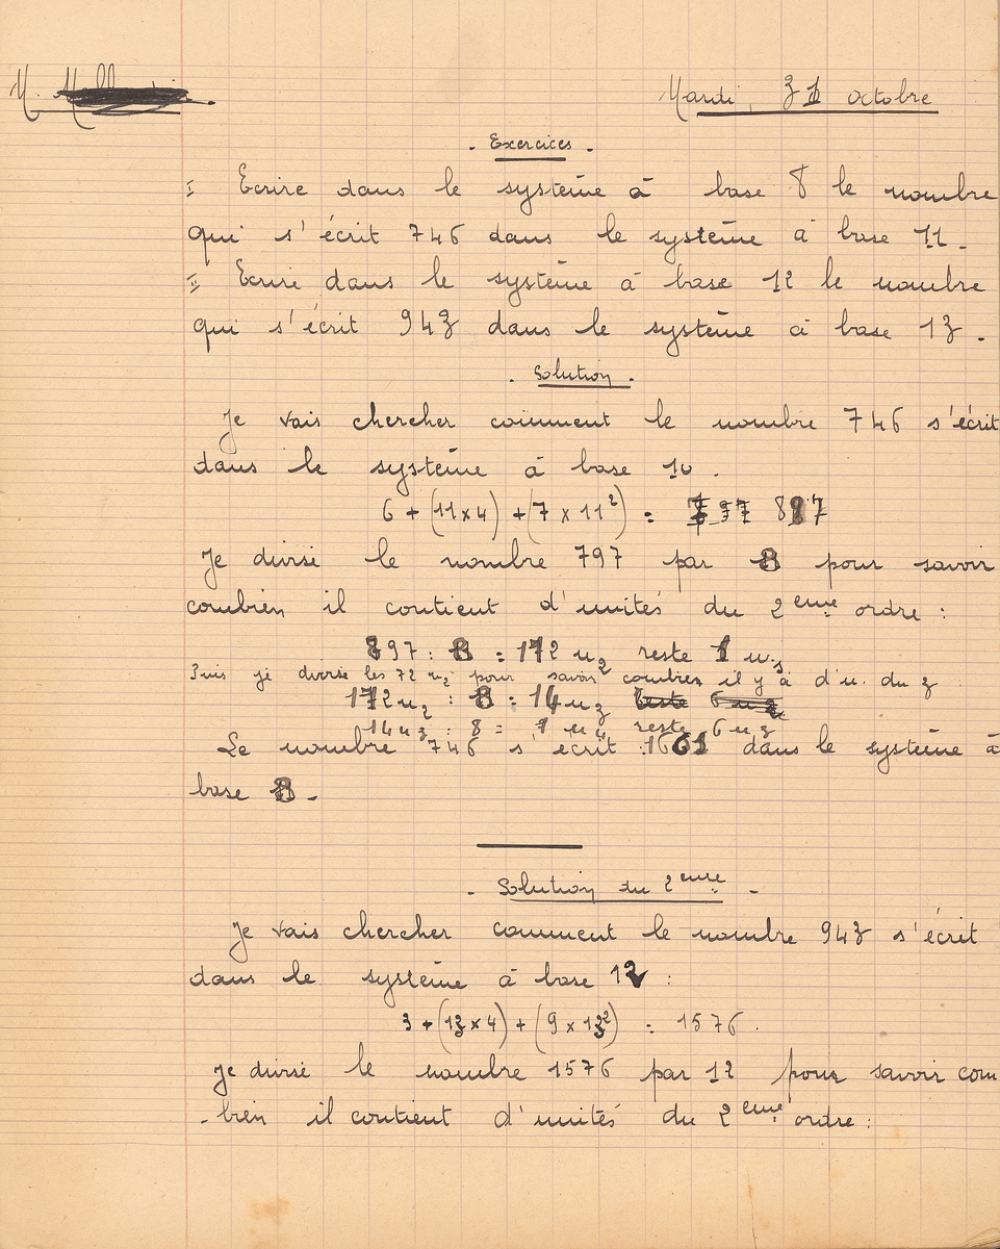 Mardi, 31 octobre
- Exercices -
I Ecrire dans le système à base 8 le nombre
qui s'écrit 746 dans le système à base 11.
II Ecrire dans le système à base 12 le nombre
qui s'écrit 943 dans le système à base 13.
- Solution -
Je vais chercher comment le nombre 746 s'écrit
dans le système à base 10.
6 + (11 x 4) + (7 x 11²) = 897
Je divise le nombre 797 par 8 pour savoir
combien il contient d'unités du 2ème ordre :
897 : 8 = 112 u2 reste 1 u.
Puis je divise les 72 u2 pour savoir combien il y a d'u. du 3
112 u2 : 8 = 14 u3
14 u3 : 8 = 1 u4 reste 6 u3
Le nombre 746 s'écrit 1601 dans le système à
base 8.
- Solution du 2ème -
Je vais chercher comment le nombre 943 s'écrit
dans le système à base 12 :
3 + (13 x 4) + (9 x 13²) = 1576.
Je divise le nombre 1576 par 12 pour savoir com
-bien il contient d'unités du 2ème ordre :